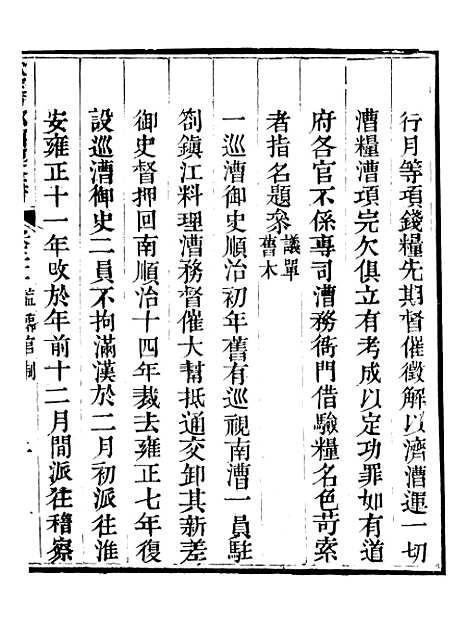 行月等項錢糧先期督催徵解以濟漕運一切
漕糧漕項完欠俱立有考成以定功罪如有道
府各官不係專司漕務衙門借驗糧名色苛索
者指名題叅議單舊本
一巡漕御史順治初年舊有巡視南漕一員駐
劄鎮江料理漕務督催大幫抵通交卸其新差
御史督押回南順治十四年裁去雍正七年復
設巡漕御史二員不拘滿漢於二月初派往淮
安雍正十一年改於年前十二月間派往稽察